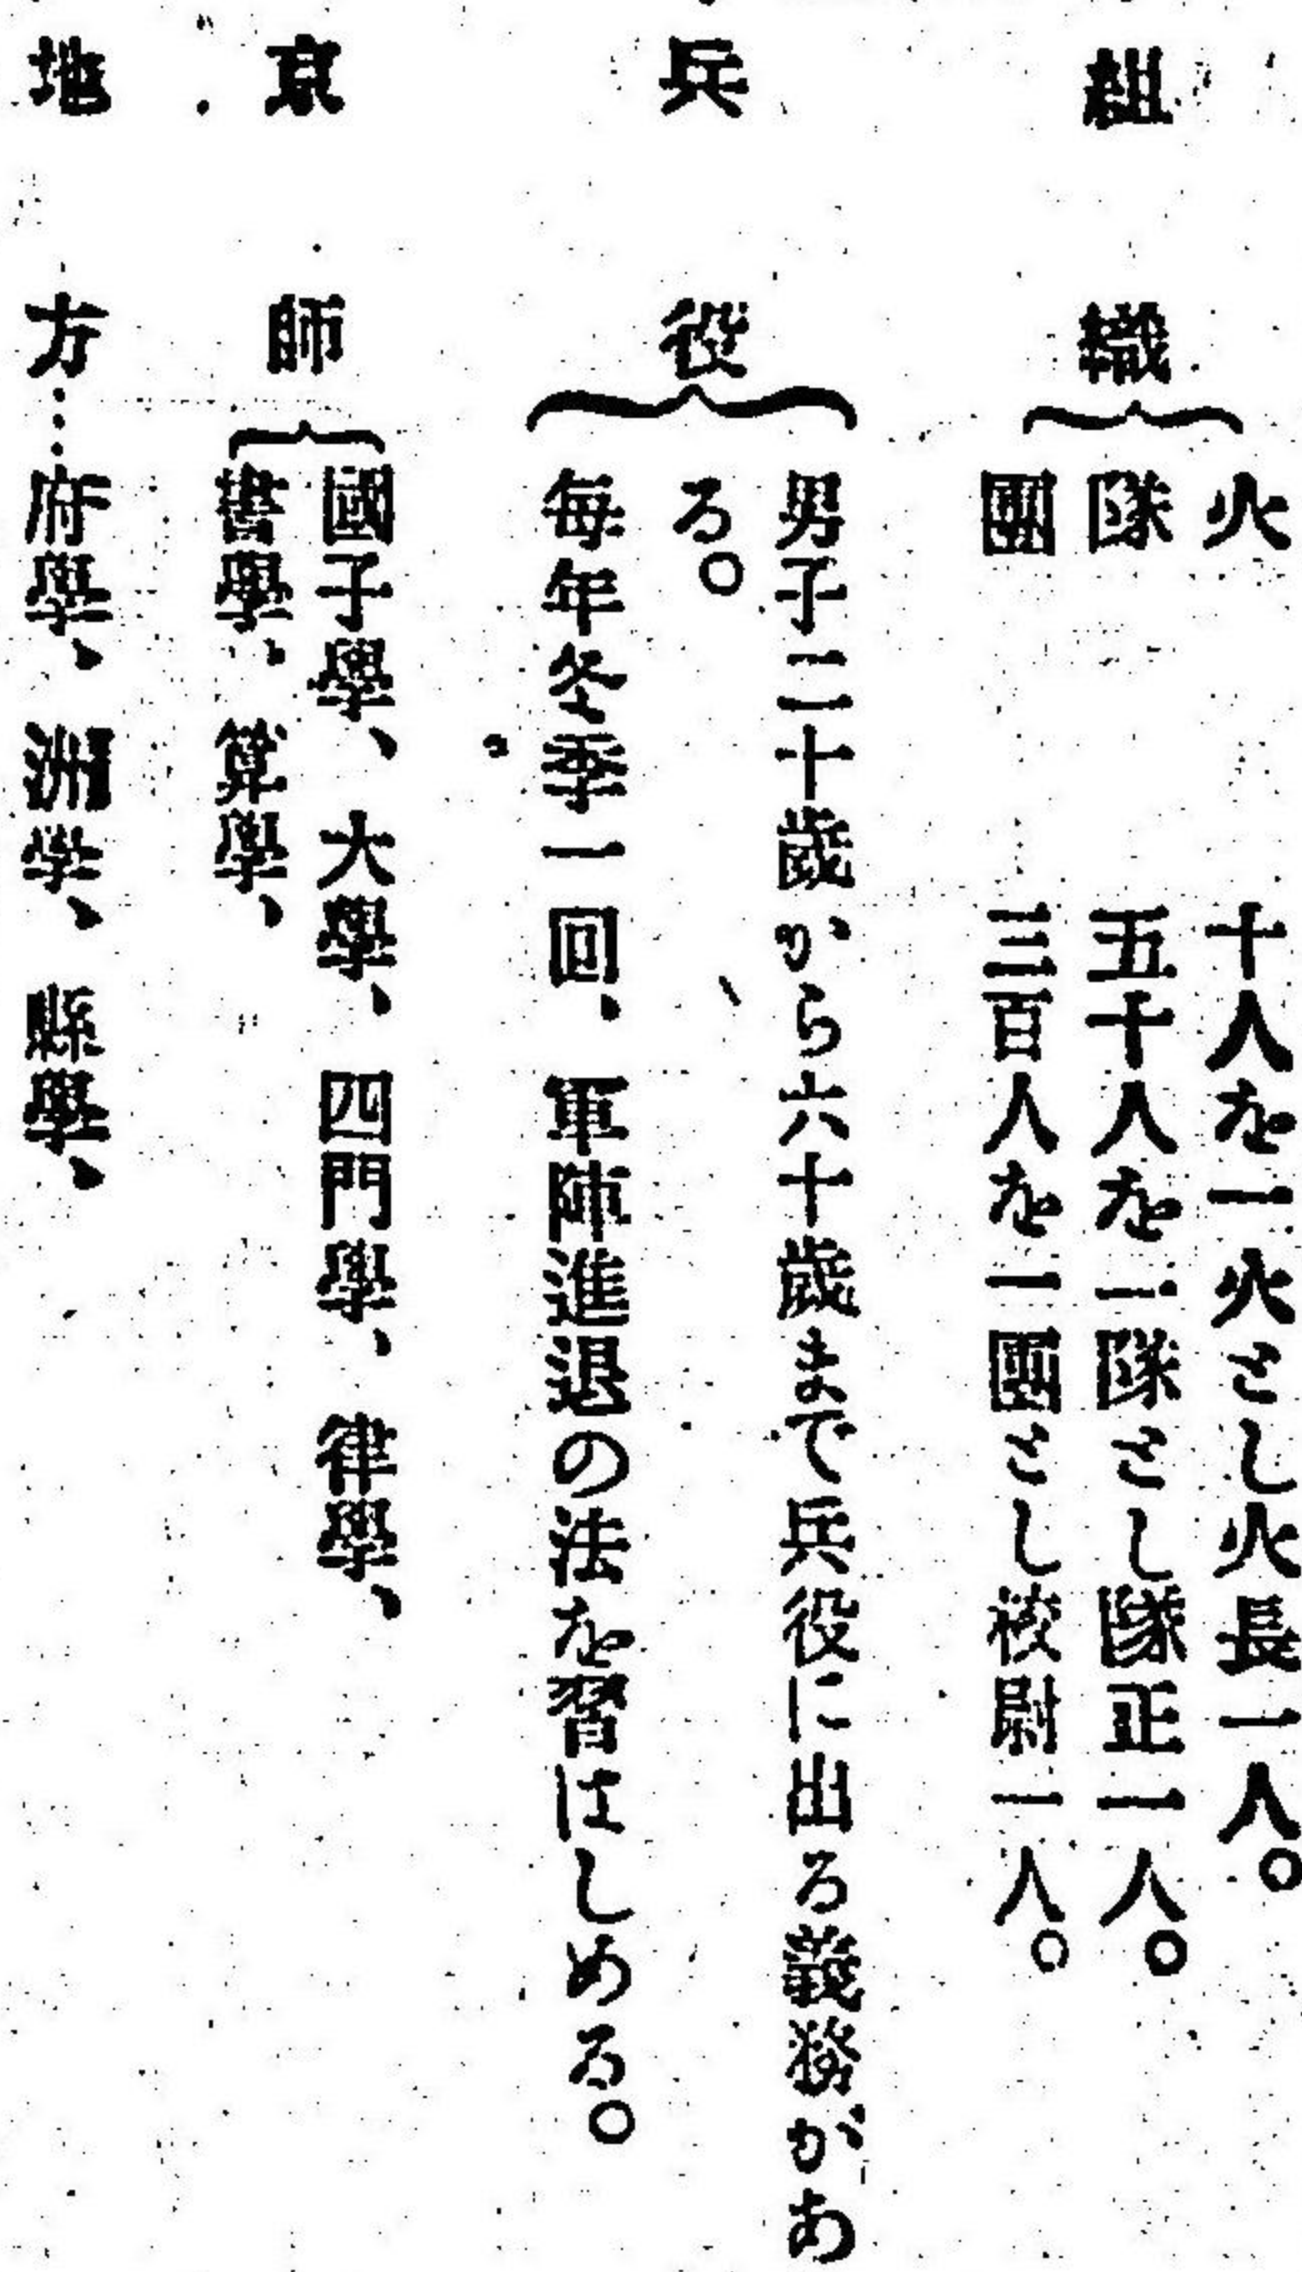 組織
火 十人を一火とし火長一人。
隊 五十人を一隊とし隊正一人。
團 三百人を一團とし校尉一人。
兵役
男子二十歲から六十歲まで兵役に出る義務があ
る。
每年冬季一回、軍陣進退の法を習はしめる。
京師
國子學、大學、四門學、律學、
書學、算學、
地方…府學、洲学、縣學、